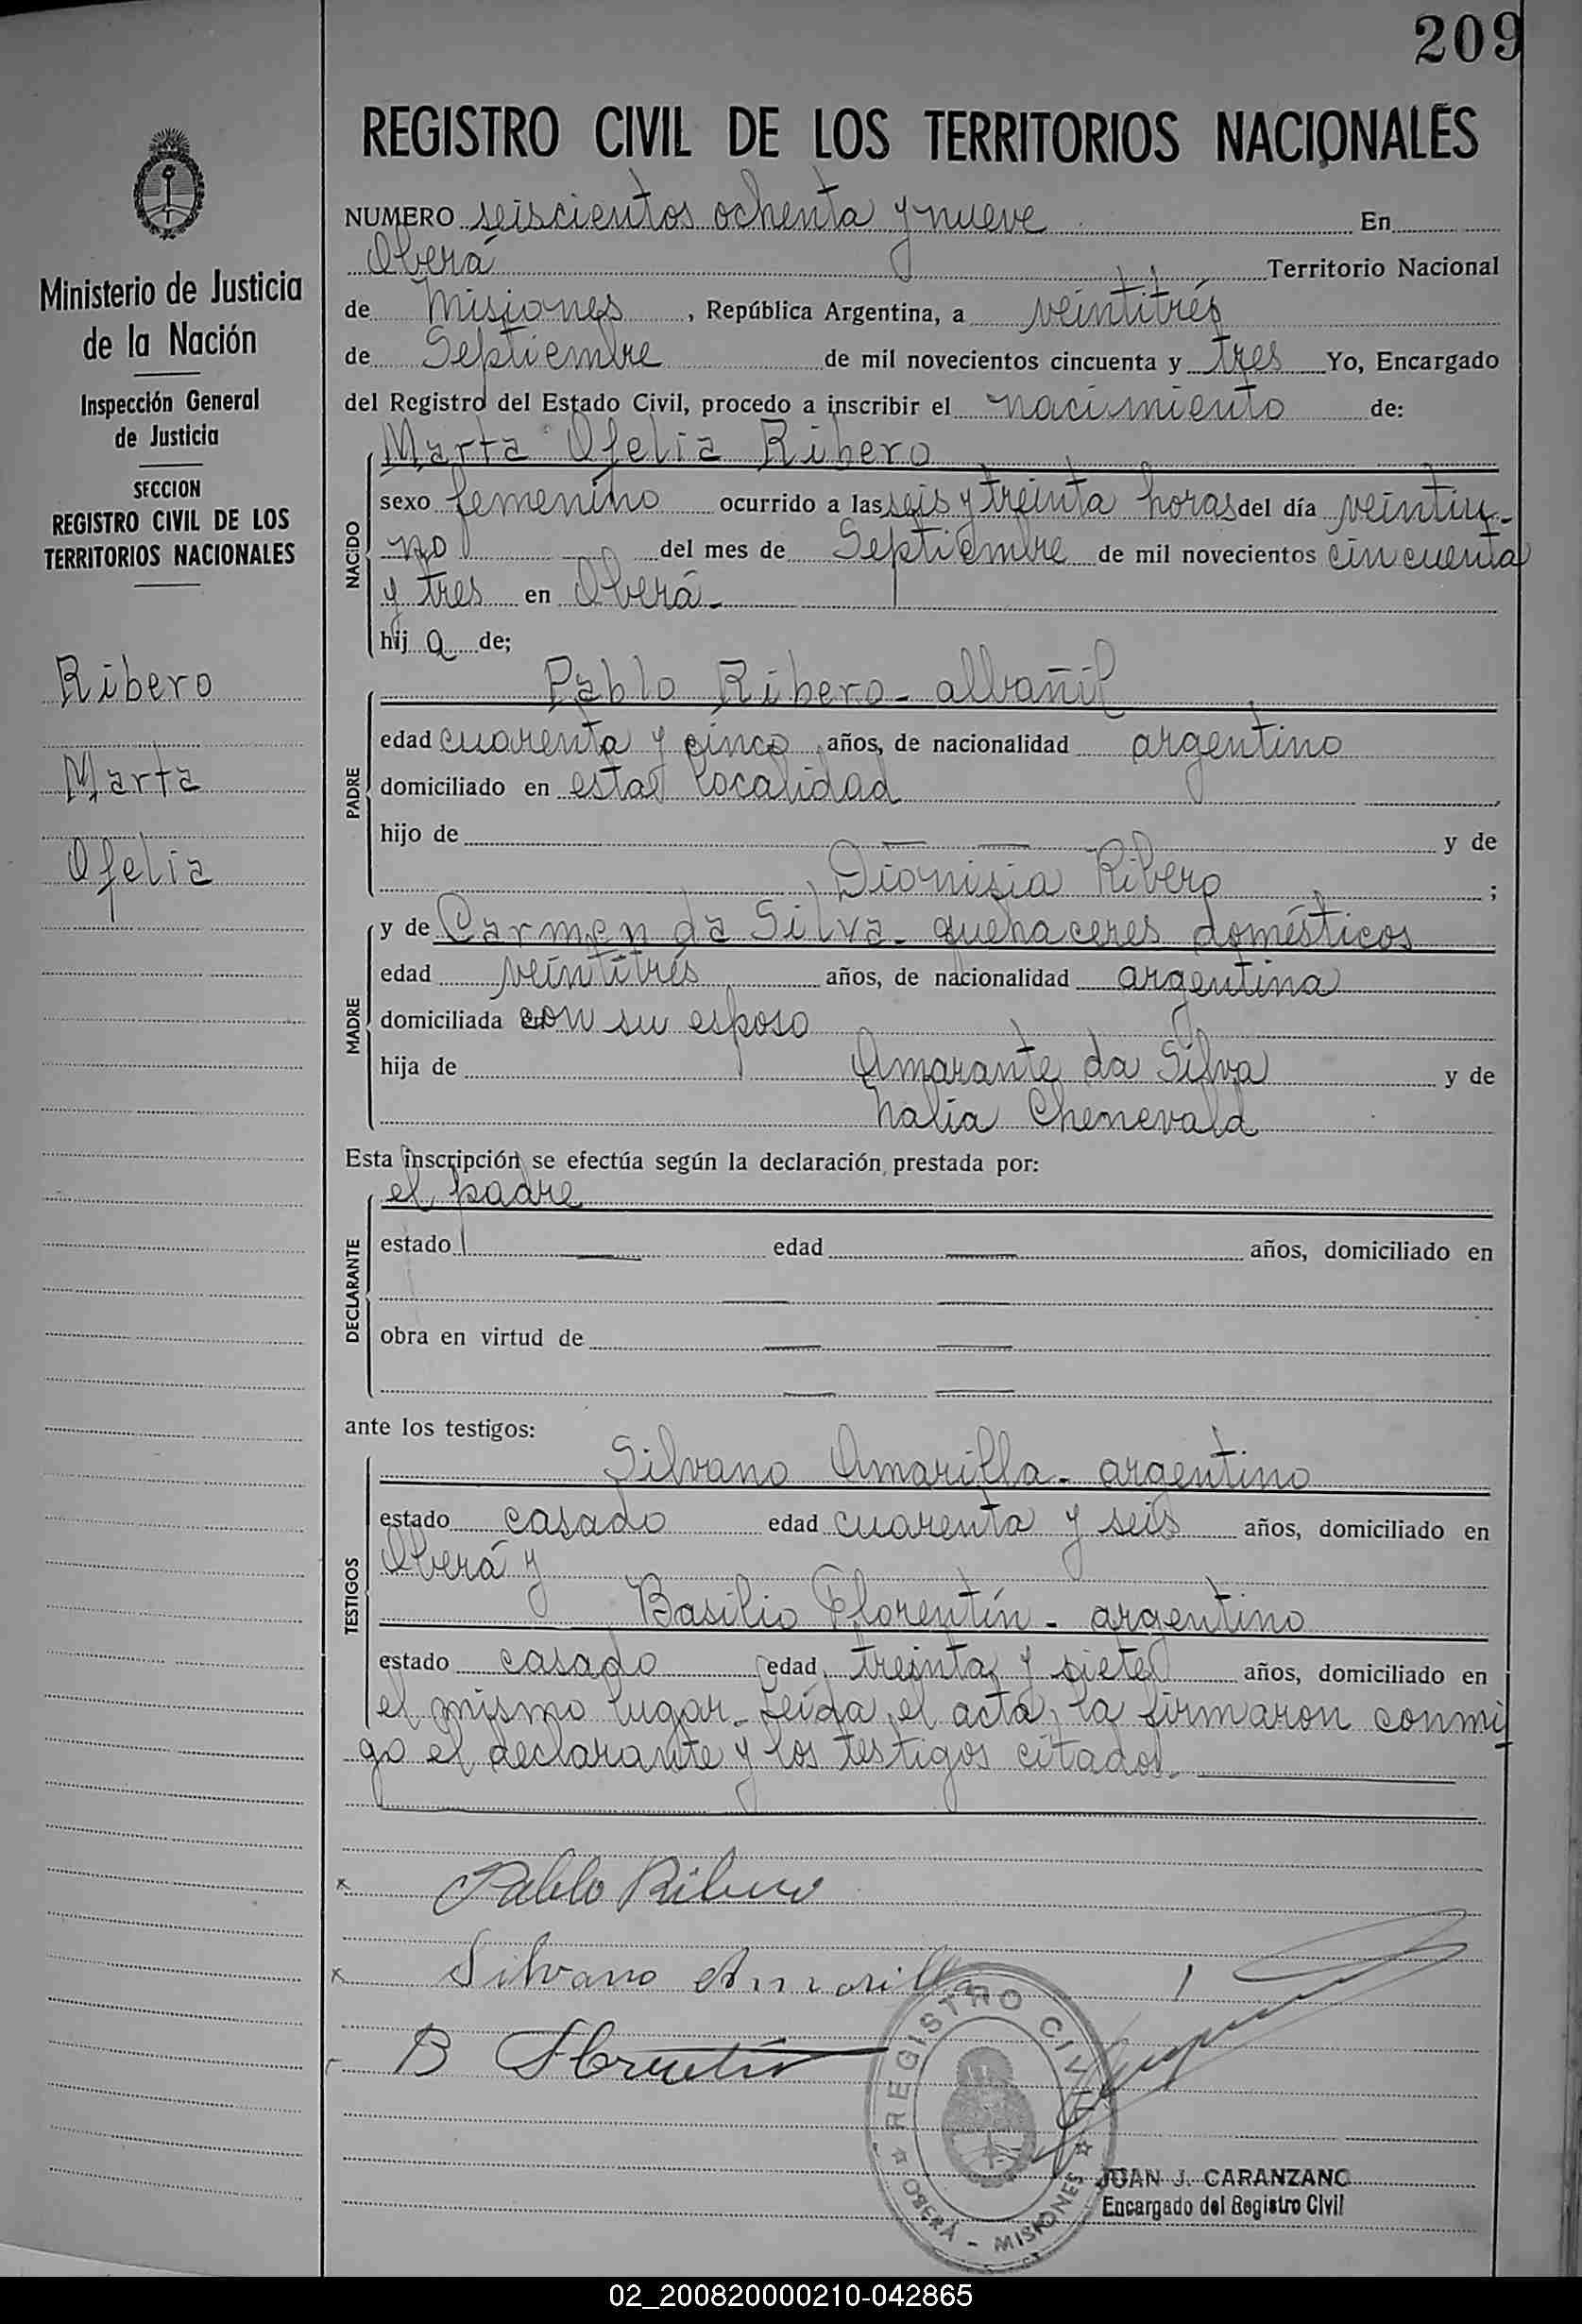 209
REGISTRO CIVIL DE LOS TERRITORIOS NACIONALES
Ministerio de Justicia
de la Nación
Inspección General
de Justicia
SECCION
REGISTRO CIVIL DE LOS
TERRITORIOS NACIONALES
Ribero
Marta
Ofelia
NUMERO seiscientos ochenta y nueve En
Oberá Territorio Nacional
de Misiones, República Argentina, a veintitrés
de Septiembre de mil novecientos cincuenta y tres Yo, Encargado
del Registro del Estado Civil, procedo a inscribir el nacimiento de:
NACIDO
Marta Ofelia Ribero
sexo femenino ocurrido a las seis y treinta horas del día veintiu-
no del mes de Septiembre de mil novecientos cincuenta
y tres en Oberá-
hij a de;
PADRE
Pablo Ribero - albañil
edad cuarenta y cinco años, de nacionalidad argentino
domiciliado en esta localidad
hijo de — — y de
Dionisia Ribero ;
MADRE
y de Carmen da Silva - quehaceres domésticos
edad veintitrés años, de nacionalidad argentina
domiciliada con su esposo
hija de Amarante da Silva y de
Nalia Chenevald
Esta inscripción se efectúa según la declaración prestada por:
DECLARANTE
el padre
estado — edad — años, domiciliado en
— —
obra en virtud de — —
— —
ante los testigos:
TESTIGOS
Silvano Amarilla - argentino
estado casado edad cuarenta y seis años, domiciliado en
Oberá y
Basilio Florentín - argentino
estado casado edad treinta y siete años, domiciliado en
el mismo lugar - Leída el acta, la firmaron conmi
go el declarante y los testigos citados.-
Pablo Ribero
Silvano Amarilla
B Florentín
REGISTRO CIVIL
OBERÁ - MISIONES
JUAN J. CARANZANO
Encargado del Registro Civil
02_200820000210-042865